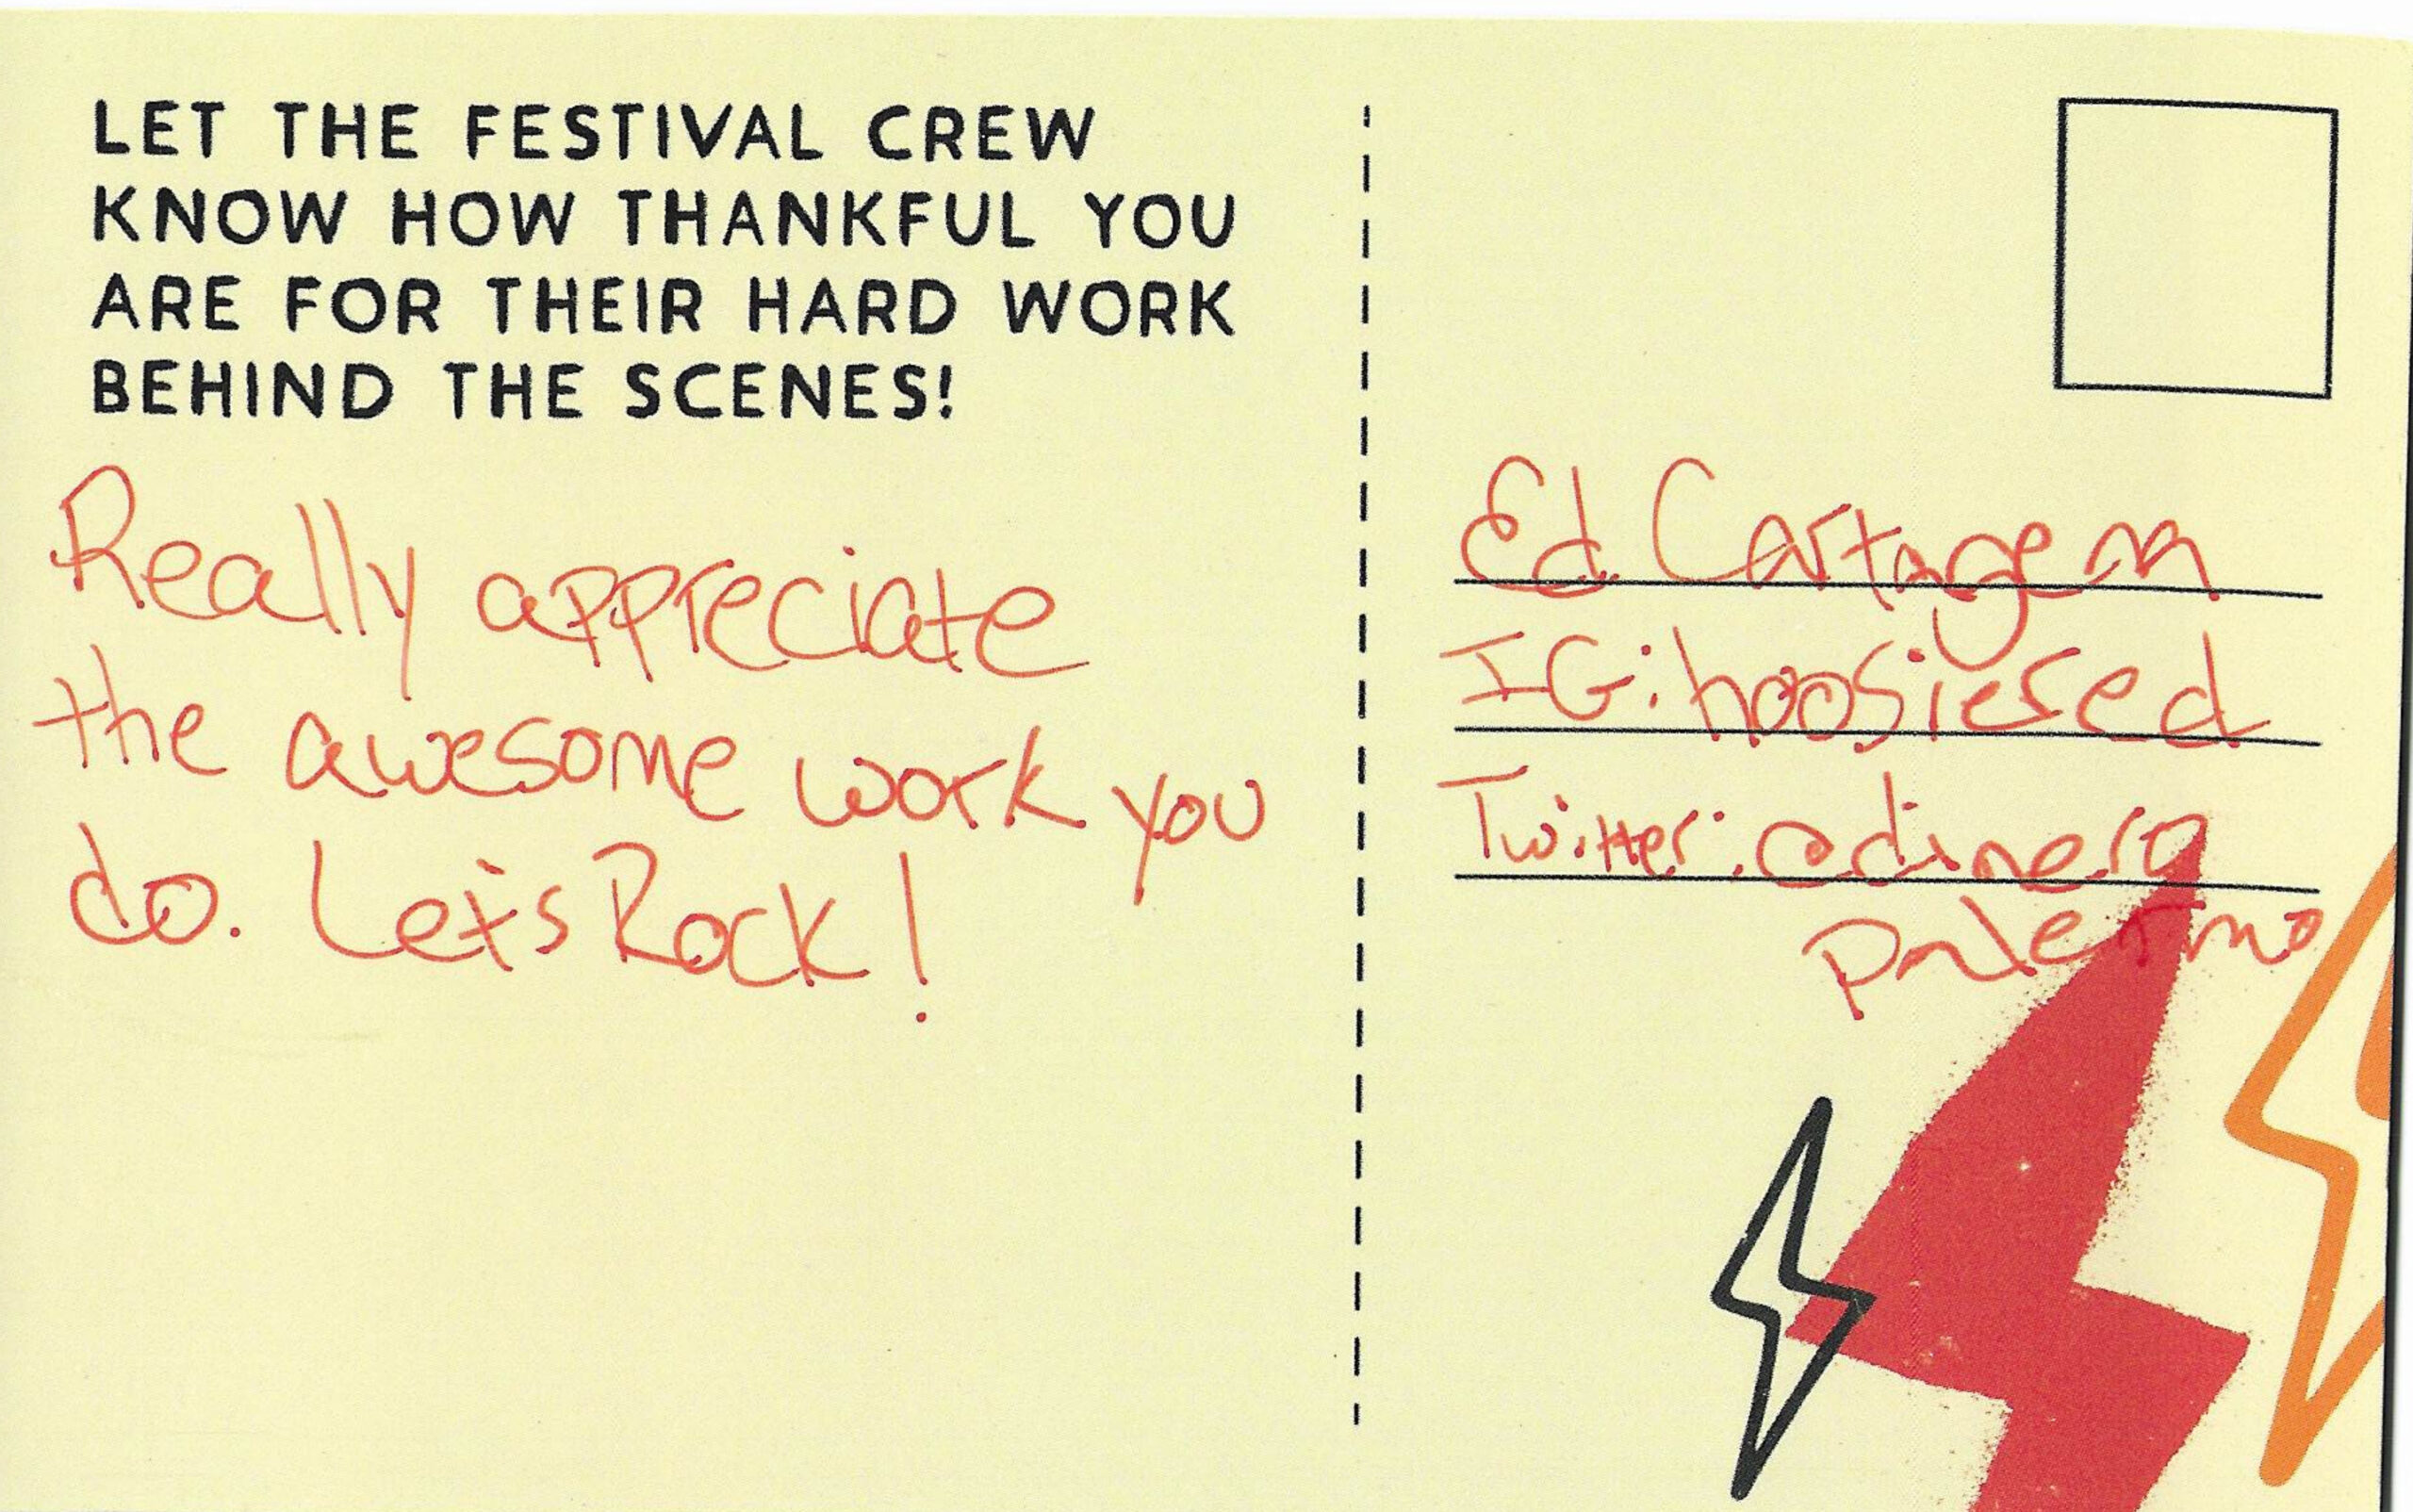 LET THE FESTIVAL CREW
KNOW HOW THANKFUL YOU
ARE FOR THEIR HARD WORK
BEHIND THE SCENES!
Really appreciate
the awesome work you
do. Let's Rock!
Ed Cartagena
IG: hoosiered
Twitter: edinero
palermo